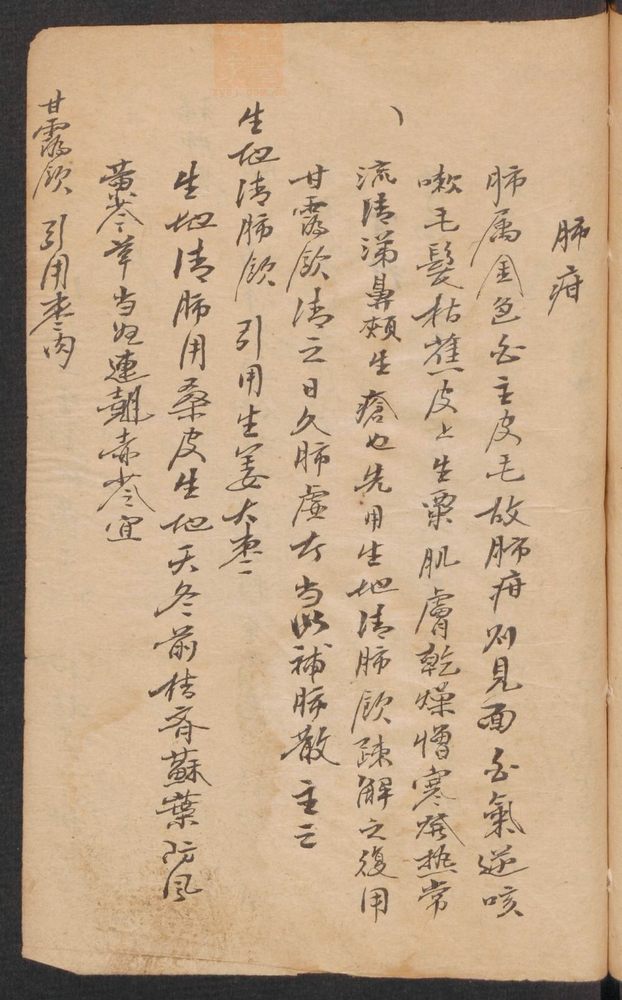 肺疳
肺属金色白主皮毛故肺疳则見面白氣逆咳
嗽毛髮枯蕉皮上生粟肌膚乾燥憎寒發热常
流清涕鼻頰生瘡也先用生地清肺飲疎解之復用
甘露飲清之日久肺虚者当以補肺散主之
生地清肺飲 引用生姜大枣
生地清肺用桑皮生地天冬前桔齊蘇葉防风
黄芩草当归連翹赤苓宜
甘露飲 引用枣肉